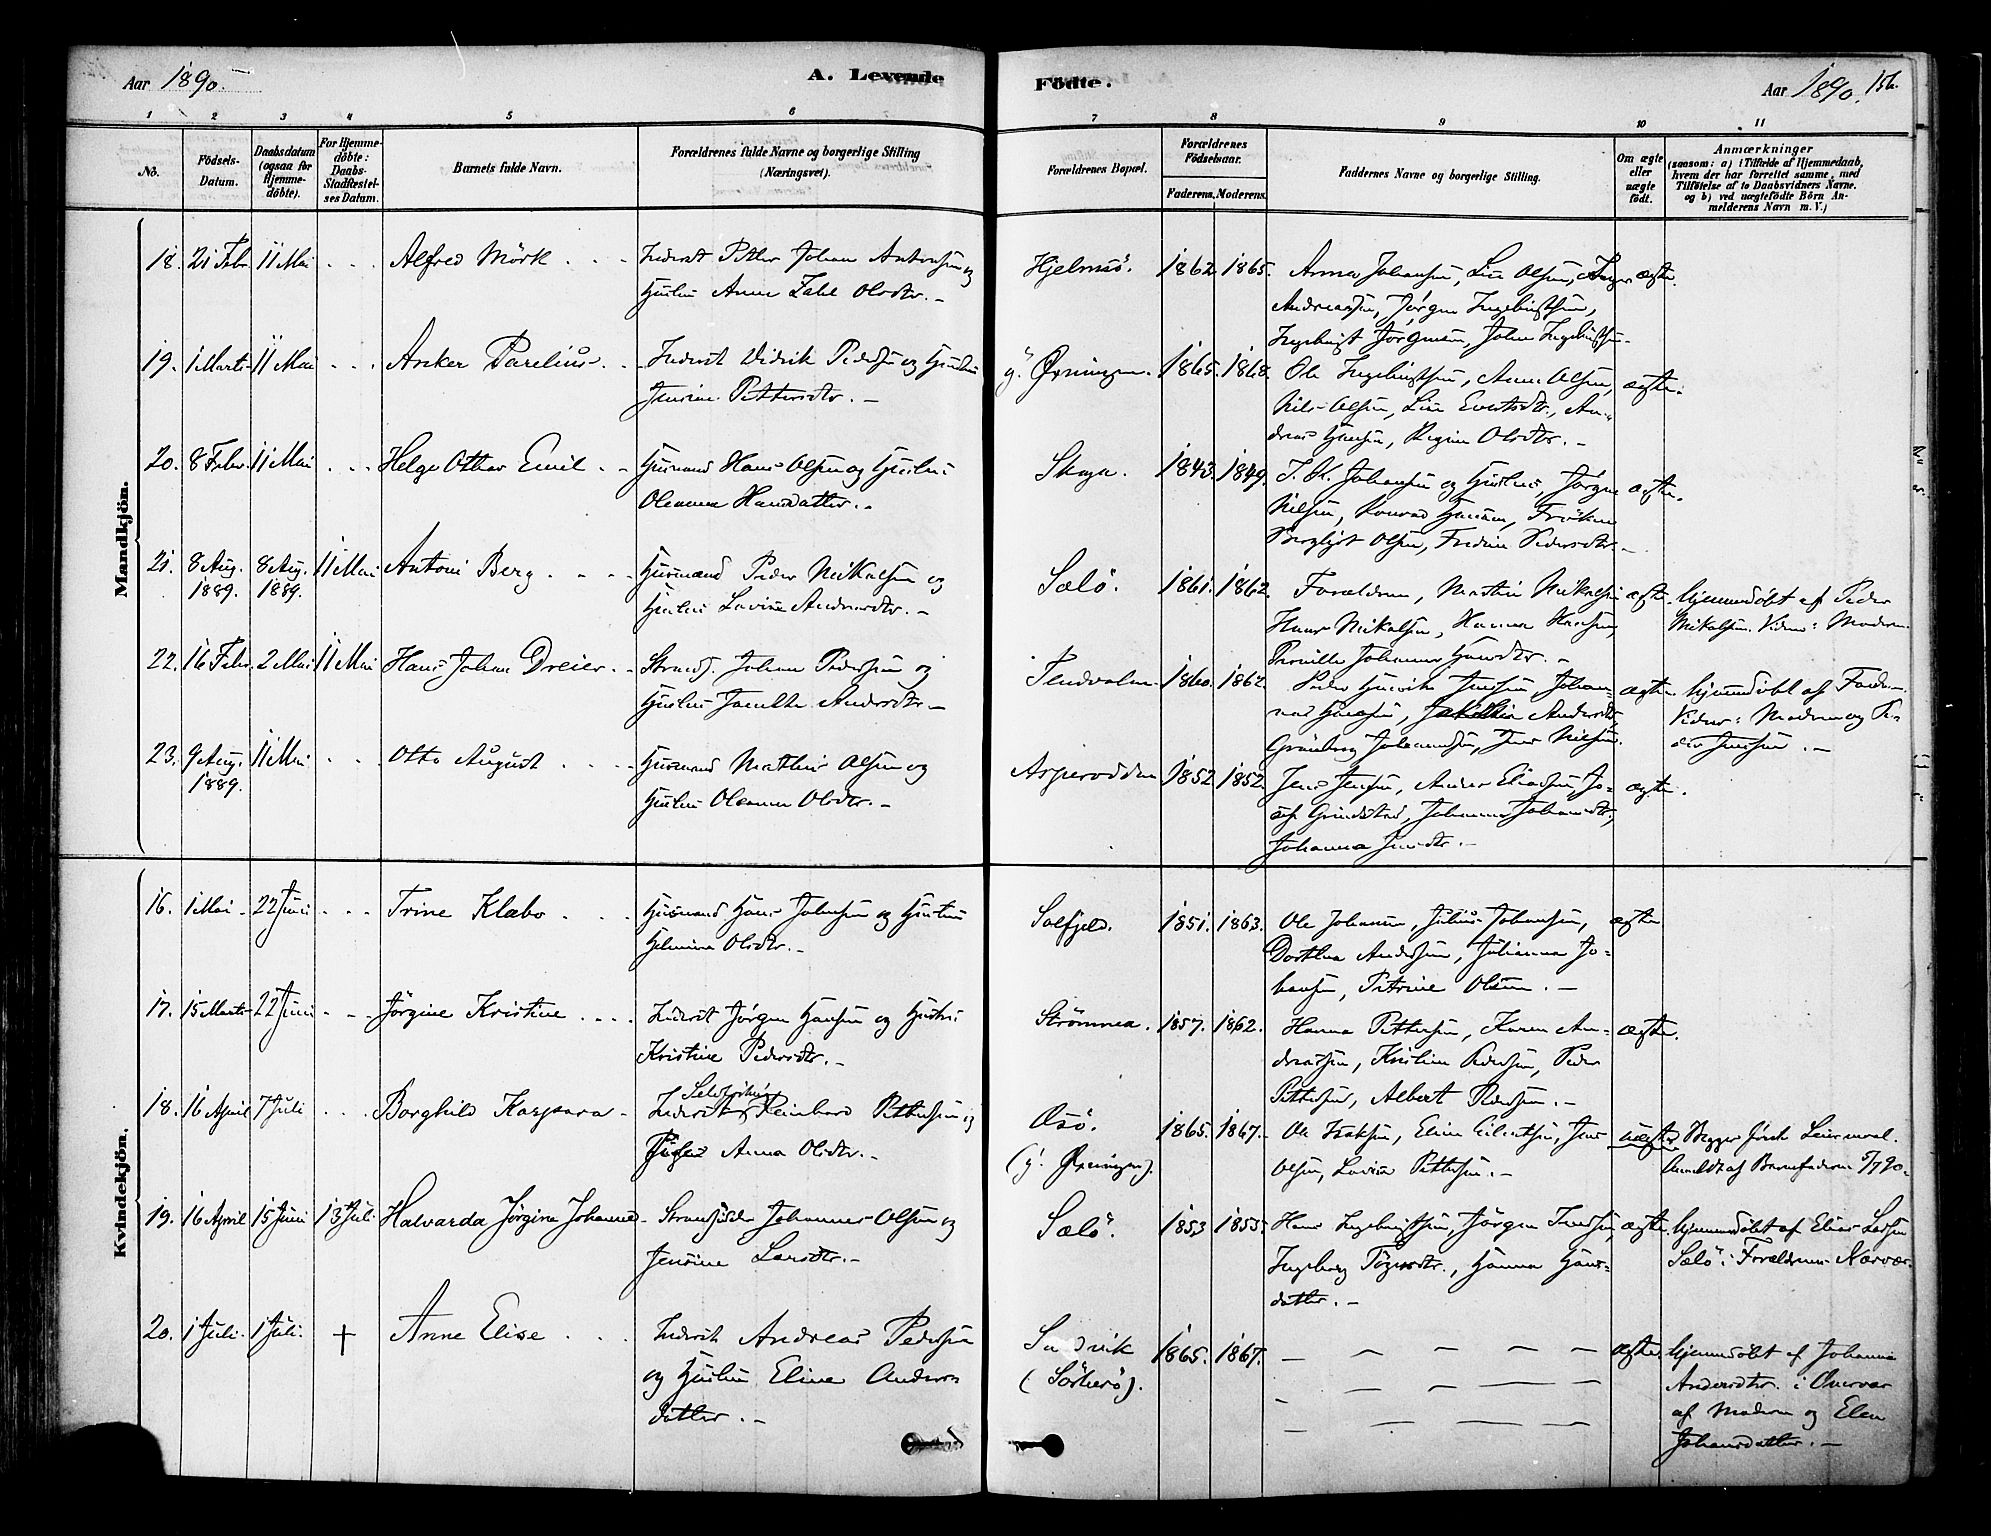 Aar 1890.
A. Levende
Födte.
Aar 1890. 156.
1 2 3 4 5 6 7 8 9 10 11
No.
Födsels-
Datum.
Daabsdatum
(ogsaa for
Hjemme-
döbte).
For Hjemme-
döbte:
Daabs-
Stadfæstel-
ses Datum.
Barnets fulde Navn.
Forældrenes fulde Navne og borgerlige Stilling
(Næringsvei).
Forældrenes Bopæl.
Forældrenes
Födselsaar.
Faderens. Moderens.
Faddernes Navne og borgerlige Stilling.
Om ægte
eller
uægte
födt.
Anmærkninger
(saasom: a) i Tilfælde af Hjemmedaab,
hvem der har forrettet samme, med
Tilföielse af to Daabsvidners Navne.
og b) ved uægtefödte Börn An-
melderens Navn m. V.)
Mandkjön.
18. 21 Febr 11 Mai Alfred Mörk
Inderst Petter Johan Antonsen og
Hustru Anna Zahl Olsdtr.
Hjelmsö. 1862 1865.
Anna Johansen, Lise Olsen, Inger
Andreassen, Jörgen Ingebrigtsen,
Ingebrigt Jörgensen, Johan Ingebrigtsen
ægte.
19. 1 Marts 11 Mai Anker Parelius
Inderst Didrik Pedersen og Hustru
Jensine Pettersdtr.
g. Øxningen. 1865. 1868.
Ole Ingebrigtsen, Anne Olsen,
Nils Olsen, Lise Evertsdtr, An-
dreas Hansen, Regine Olsdtr.
ægte.
20. 8 Febr. 11 Mai Helge Othar Emil
Husmand Hans Olsen og Hustru
Oleanna Hansdatter.
Skaga. 1843. 1849.
J. K. Johansen og Hustru, Jörgen
Nilsen, Konrad Hansen, Fröken
Bergljot Olsen, Fredrikke Pedersdtr
ægte.
21. 8 Aug. 1889. 8 Aug. 1889. 11 Mai Antoni Berg
Husmand Peder Mikalsen og
Hustru Lovise Andersdtr.
Sælö. 1861. 1862.
Forældrene, Martin Mikalsen
Hans Mikalsen, Hanna Hansen,
Pernille Johanna Hansdtr.
ægte. hjemmedöbt af Peder
Mikalsen. Vidne: Moderen.
22. 16 Febr. 2 Mai 11 Mai Hans Johan Dreier
Strands. Johan Pedersen og
Hustru Jonette Andersdtr
Tendvalen 1860. 1862.
Peder Henrik Jensen, Johan-
nes Hansen, Andersdtr,
Grönberg Johannesen, Jens Nilsen.
ægte. hjemmedöbt af Faderen.
Vidner: Moderen og Pe-
der Jensen.
23. 9 Aug. 1889. 11 Mai Otto August
Husmand Mathis Olsen og
Hustru Oleanna Olsdtr.
Asperodden 1852 1852.
Jens Jensen, Anders Eliassen, Jo-
sef Grindstad, Johanna Johansdtr,
Johanna Jensdtr.
ægte.
Kvindekjön.
16. 1 Mai 22 Juni Trine Klæbo
Husmand Hans Johnsen og Hustru
Helmine Olsdtr.
Solfjeld. 1851. 1863.
Ole Johansen, Julius Johansen,
Dorthea Andersen, Julianna Jo-
hansen, Petrine Olsen.
ægte
17. 15 Marts 22 Juni Jörgine Kristine
Inderst Jörgen Hansen og Hustru
Kristine Pedersdtr.
Strömnea. 1857. 1862.
Hanna Pettersen, Karen An-
dreassen, Kristine Pedersen, Peder
Pettersen, Albert Pedersen.
ægte.
18. 16 April 7 Juli Borghild Kaspara
Inderst Reinhard Pettersen og
Pige Anna Olsdtr.
Osö.
(g. Øxningen). 1865. 1867.
Ole Isaksen, Eline Eilertsen, Jens
Olsen, Lovise Pettersen.
uægte. Begges förste Leiermaal.
Anmeldt af Barnefaderen 5/7 90.
19. 16 April 15 Juni 13 Juli Halvarda Jörgine Johanne
Strandsidder Johannes Olsen og
Jensine Larsdtr.
Sælö. 1853 1855.
Hans Ingebrigtsen, Jörgen Jensen,
Ingeborg Tögersdtr., Hanna Hans-
datter.
ægte. hjemmedöbt af Elias Larsen
Sælö i Forældrenes Nærvær.
20. 1 Juli. 1 Juli. + Anne Elise
Inderst Andreas Pedersen
og Hustru Eline Anders-
datter.
Sandvik
(Sörherö). 1865. 1867.
ægte. hjemmedöbt af Johanna
Andersdtr. i Overvær
af Moderen og Elen
Johansdatter.